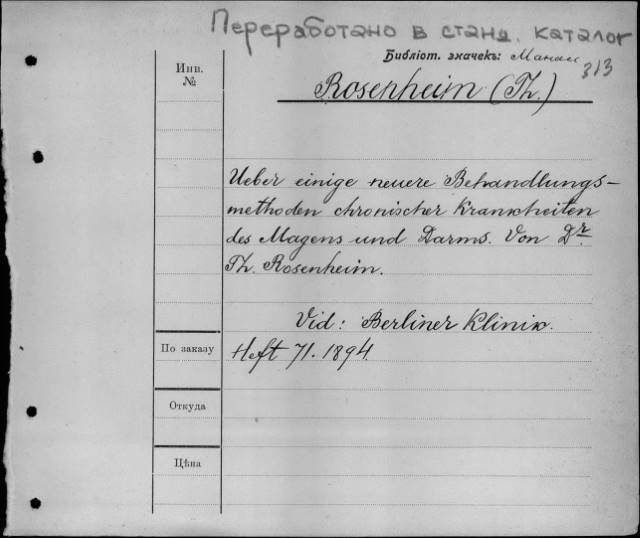 Переработано в станд. каталог
Библіот. значекъ:
313
Инв.
№
Rosenheim (Th.)
Ueber einige neuere Behandlungs-
methoden chronischer Krankheiten
des Magens und Darms. Von Dr.
Th. Rosenheim.
Vid: Berliner Klinik.
По заказу
Heft 71. 1894.
Откуда
Цѣна